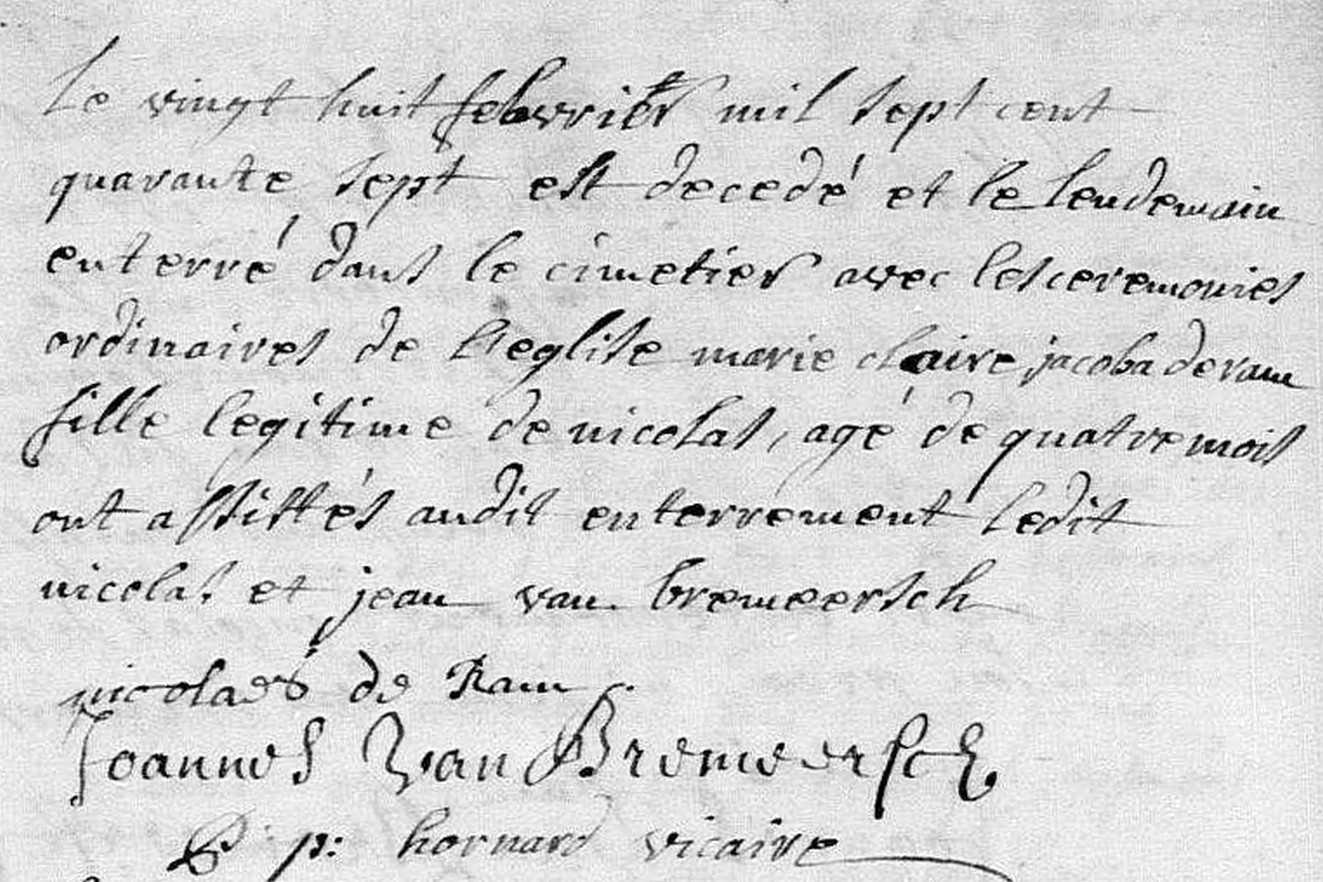 Le vingt huit febvrier mil sept cent
quarante sept est decedé et le lendemain
enterré dans le cimetier avec les ceremonies
ordinaires de l'eglise marie claire jacoba de ram
fille legitime de nicolas, agé de quatre mois
ont assistés audit enterrement ledit
nicolas et jean van bremeersch
nicolaes de Ram
Joannes Van Bremeersch
p: hornard vicaire